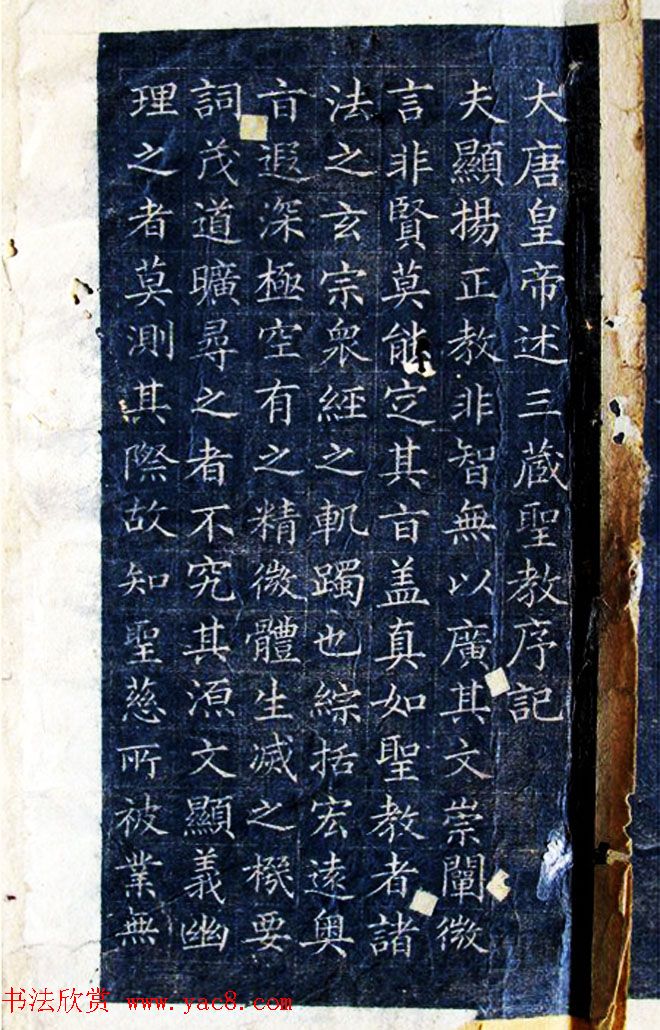 大唐皇帝述三藏聖教序記
夫顯揚正教非智無以廣其文崇闡微
言非賢莫能定其旨盖真如聖教者諸
法之玄宗衆經之軌躅也綜括宏遠奥
旨遐深極空有之精微體生滅之機要
詞茂道曠尋之者不究其源文顯義幽
理之者莫測其際故知聖慈所被業無
书法欣赏 www.yac8.com